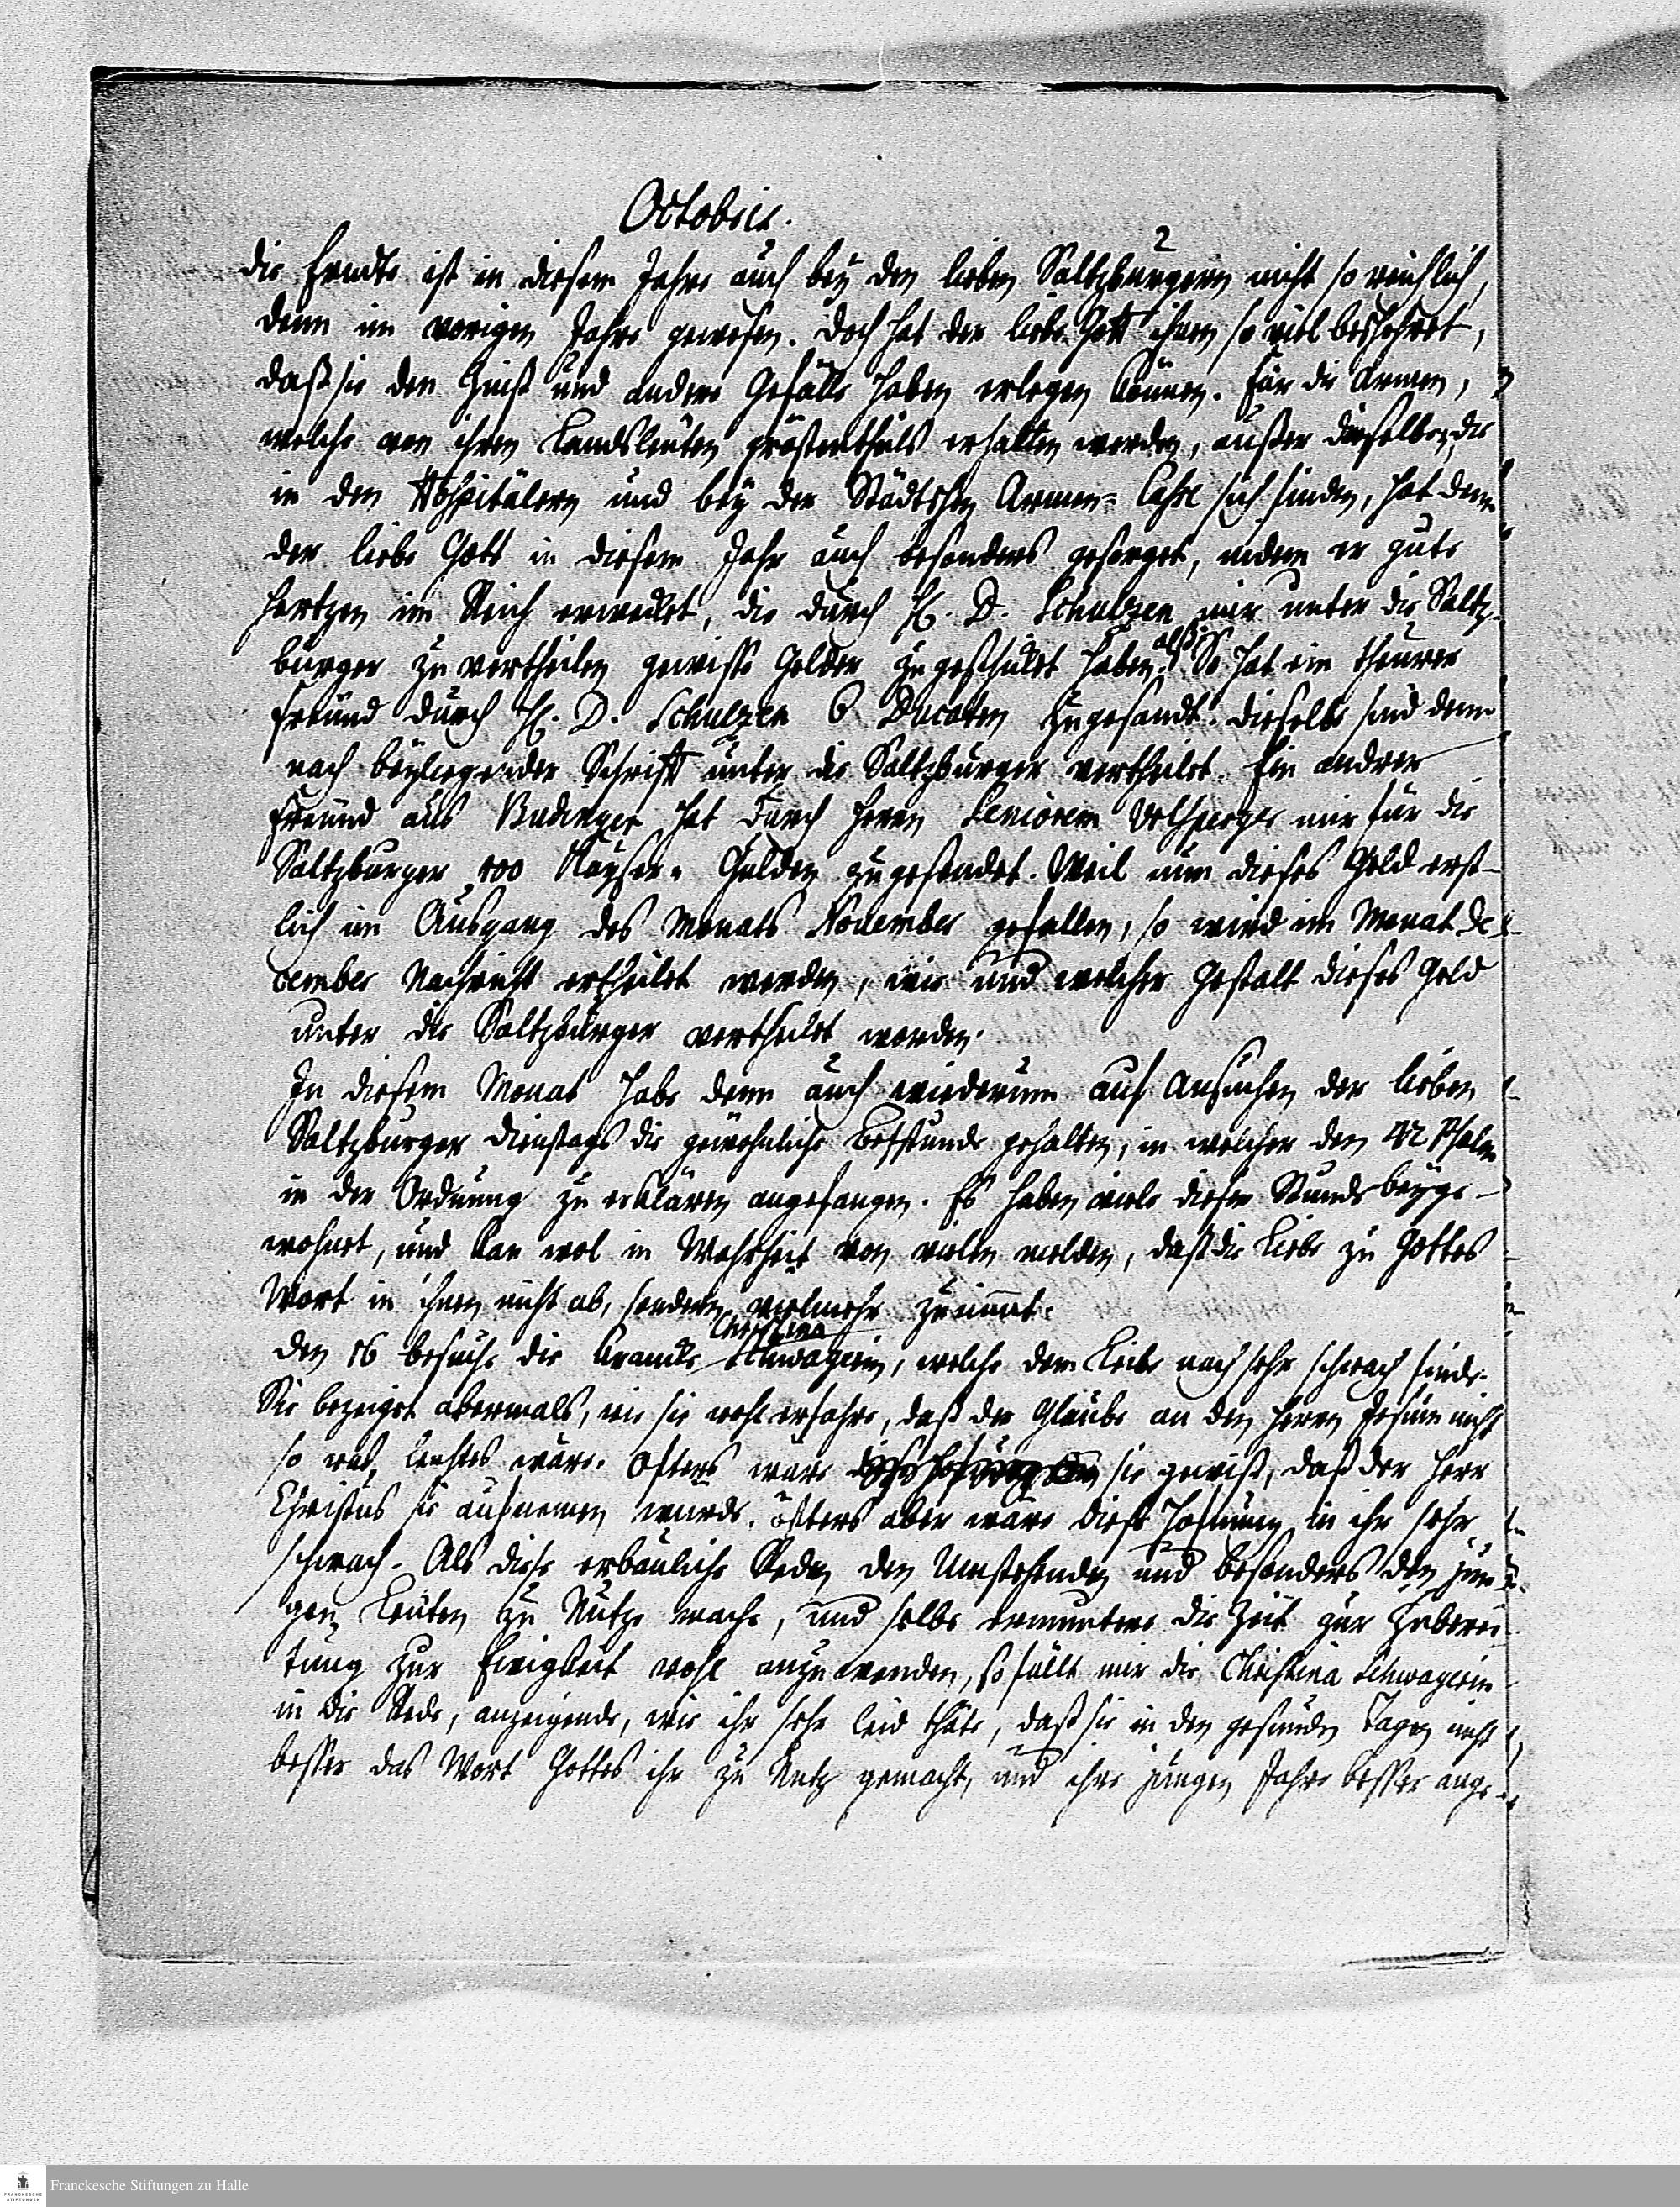 Octobris.
2
die Erndte ist in diesem Jahre auch bey den lieben Saltzburgern nicht so reichlich,
denn im vorigen Jahre gewesen. Doch hat der liebe Gott ihnen so viel bescheret,
daß sie den Zinß und andere Gefälle haben erlegen können. Für die Armen,
welche von ihren Landsleuten gröstentheils erhalten werden, außer dieselben, die
in den Hospitälern und bey der Städtschen Armen-Casse sich finden, hat denn
der liebe Gott in diesem Jahr auch besonders gesorget, indem er gute
Hertzen im Reich erwecket, die durch H. D. Schulzen mir unter die Saltz-
burger zu vertheilen gewisse Gelder zugeschickt haben. alß So hat ein theurer
Freund durch H. D. Schulzen 6 Ducaten zugesandt. dieselbe sind denn
nach beyliegender Schrifft unter die Saltzburger vertheilet. Ein andrer
Freund aus Budingen hat durch Herrn Seniorem Urlsperger mir für die
Saltzburger 100 Kayser-Gulden zugesendet. Weil nun dieses Geld erst-
lich im Ausgang des Monats November gefallen, so wird im Monat De-
cember Nachricht ertheilet werden, wie und welcher Gestalt dieses Geld
unter die Saltzburger vertheilet worden.
In diesem Monat habe denn auch wiederum auf Ansuchen der lieben
Saltzburger Dienstags die gewöhnliche Betstunde gehalten, in welcher den 42 Psalm
in der Ordnung zu erklären angefangen. Es haben viele dieser Stunde beyge-
wohnet, und kan wol in Wahrheit von vielen melden, daß die Liebe zu Gottes
Wort in ihnen nicht ab, sondern vielmehr zunimmt.
Den 16 besuche die krancke Christina Schwagerin, welche dem Leibe nach sehr schwach finde.
Sie bezeiget abermals, wie sie wohl erfahre, daß der Glaube an den Herrn Jesum nicht
so was leichtes wäre. Öfters wäre sie gewiß, daß der Herr
Christus sie aufnemen würde, öfters aber wäre diese Hofnung in ihr sehr
schwach. Als diese erbauliche Reden den Umstehenden und besonders den jun-
gen Leuten zu Nutze mache, und selbe ermuntere die Zeit zur Zuberei-
tung zur Ewigkeit wohl anzuwenden, so fällt mir die Christina Schwagerin
in die Rede, anzeigende, wie ihr sehr leid thäte, daß sie in den gesunden Tagen nicht
besser das Wort Gottes ihr zu Nutz gemacht, und ihre jungen Jahre besser ange-
Franckesche Stiftungen zu Halle